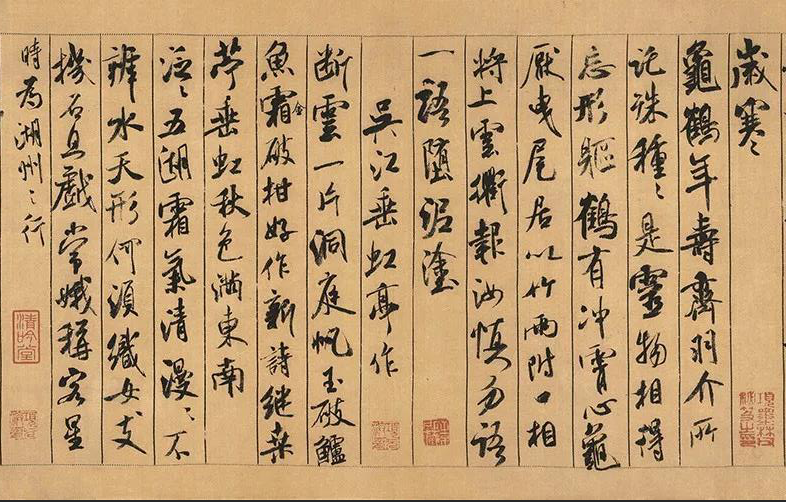 歲寒〻
龜鶴年壽齊羽介所
託殊種〻是靈物相得
忘形軀鶴有沖霄心龜
厭曳尾居以竹兩附口相
將上雲衢報汝慎勿語
一語墮泥塗
吳江垂虹亭作
断雲一片洞庭帆玉破鱸
魚霜金破柑好作新詩継桑
苧垂虹秋色滿東南
泛〻五湖霜氣清漫〻不
辨水天形何須織女支
機石且戲常娥稱客星
時為湖州之行
清吟堂